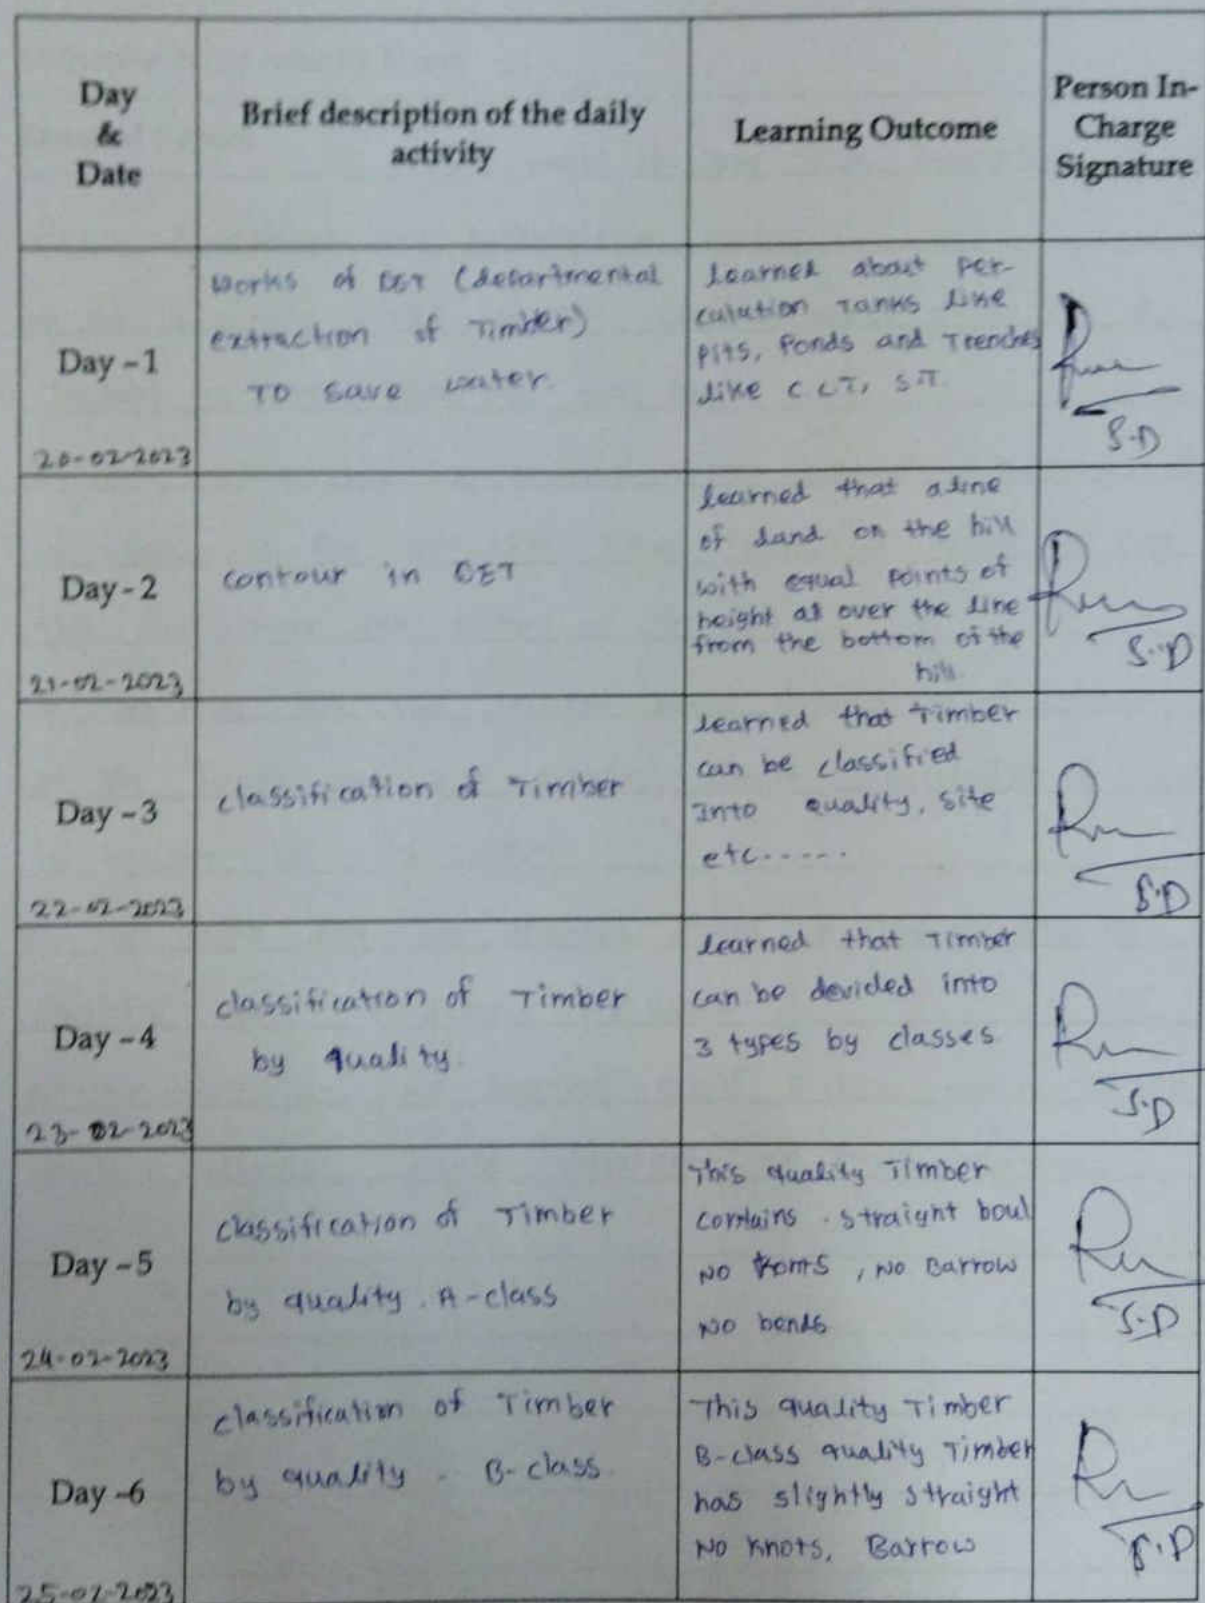 Day
&
Date
Brief description of the daily
activity
Learning Outcome
Person In-
Charge
Signature
Day - 1
20-02-2023
Works of DET (departmental
extraction of Timber)
To save water.
Learned about per-
culution Tanks like
pits, Ponds and Trenches
like CCT, S.T.
S.D
Day - 2
21-02-2023
contour in DET
learned that a line
of land on the hill
with equal points of
height all over the line
from the bottom of the
hill.
S.D
Day - 3
22-02-2023
classification of Timber
learned that Timber
can be classified
into quality, site
etc.....
S.D
Day - 4
23-02-2023
classification of Timber
by quality.
learned that Timber
can be devided into
3 types by classes.
S.D
Day - 5
24-02-2023
classification of Timber
by quality. A-class
This quality Timber
contains straight boul
No , No Barrow
No bends
S.D
Day -6
25-02-2023
classification of Timber
by quality - B-class.
This quality Timber
B-class quality Timber
has slightly straight
No knots, Barrow
S.D